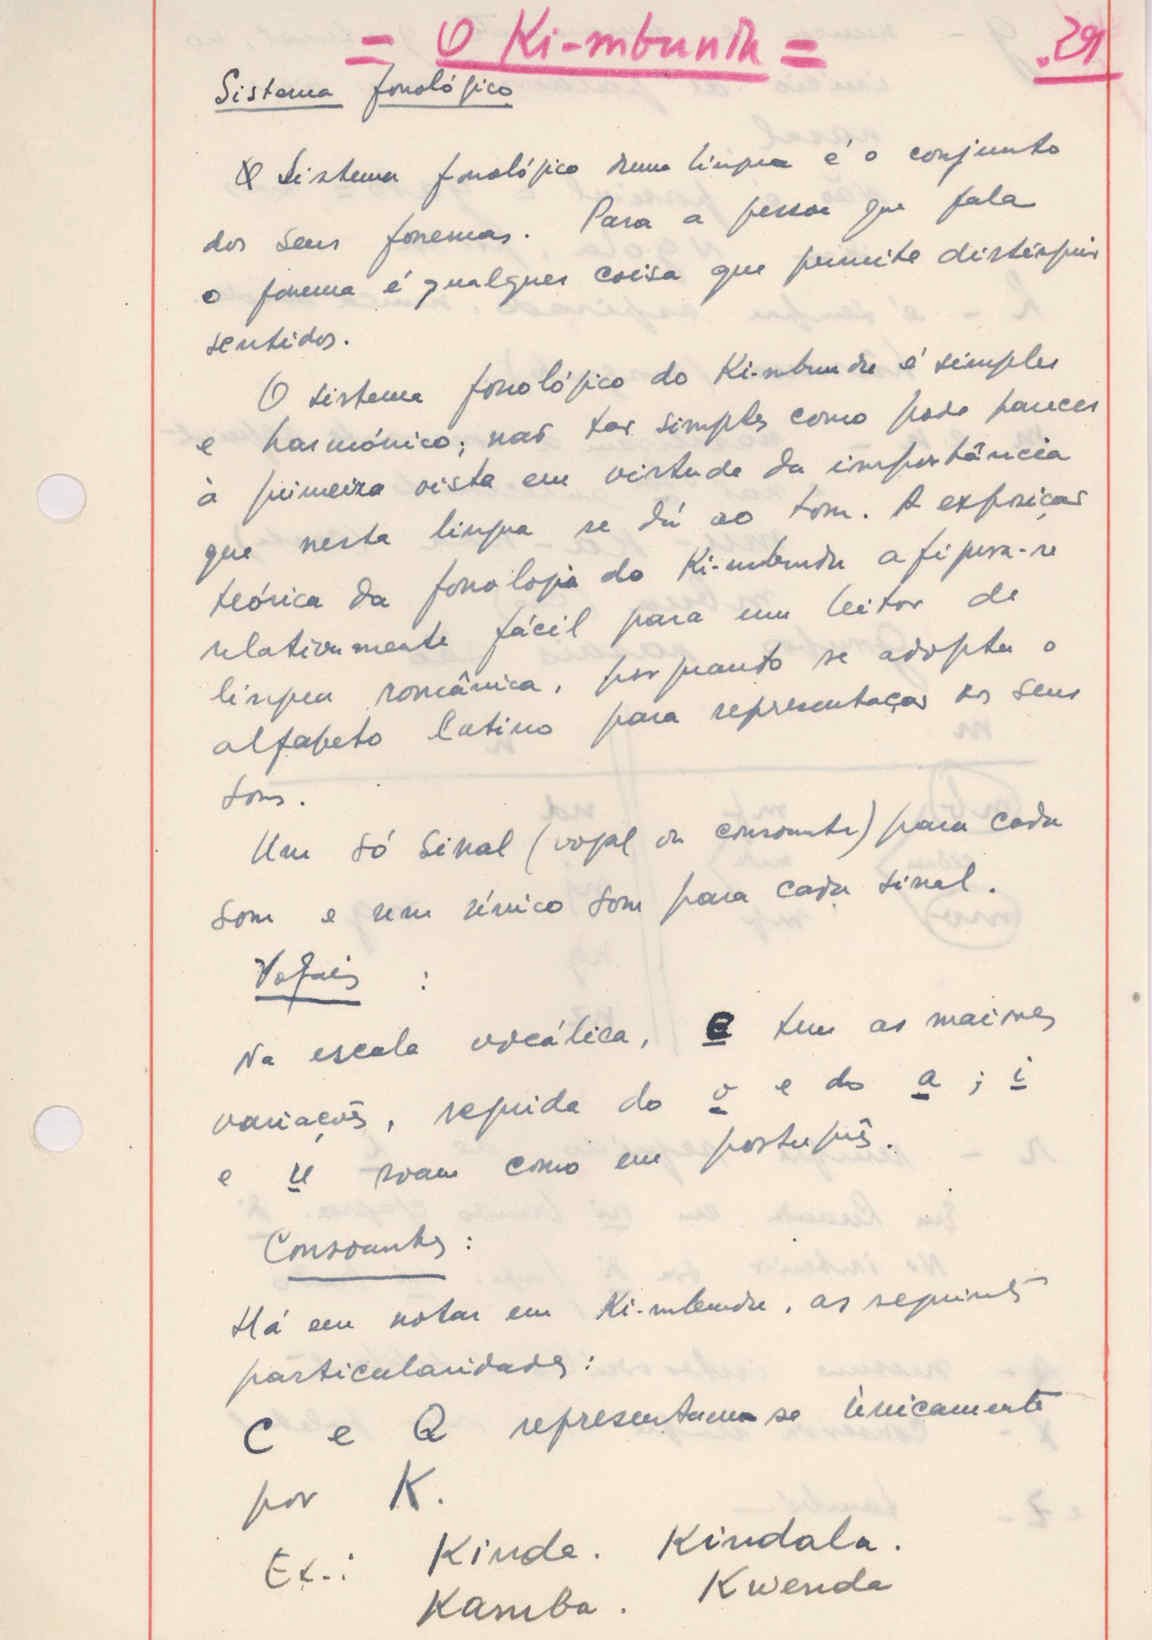 = O Ki-mbundu =
.291
Sistema fonológico
O Sistema fonológico duma língua é o conjunto
dos seus fonemas. Para a pessoa que fala
o fonema é qualquer coisa que permite distinguir
sentidos.
O sistema fonológico do Ki-mbundu é simples
e harmónico; não tão simples como pode parecer
à primeira vista em virtude da importância
que nesta língua se dá ao tom. A exposição
teórica da fonologia do Ki-mbundu afigura-se
relativamente fácil para um leitor de
língua românica, porquanto se adopta o
alfabeto latino para representação dos seus
sons.
Um só sinal (vogal ou consoante) para cada
som e um único som para cada sinal.
Vogais :
Na escala vocálica, e tem as maiores
variações, seguida do o e do a ; i
e u soam como em português.
Consoantes :
Há em notar em Ki-mbundu, as seguintes
particularidades :
C e Q representam-se ùnicamente
por K.
Ex.: Kinda. Kindala.
Kamba. Kwenda